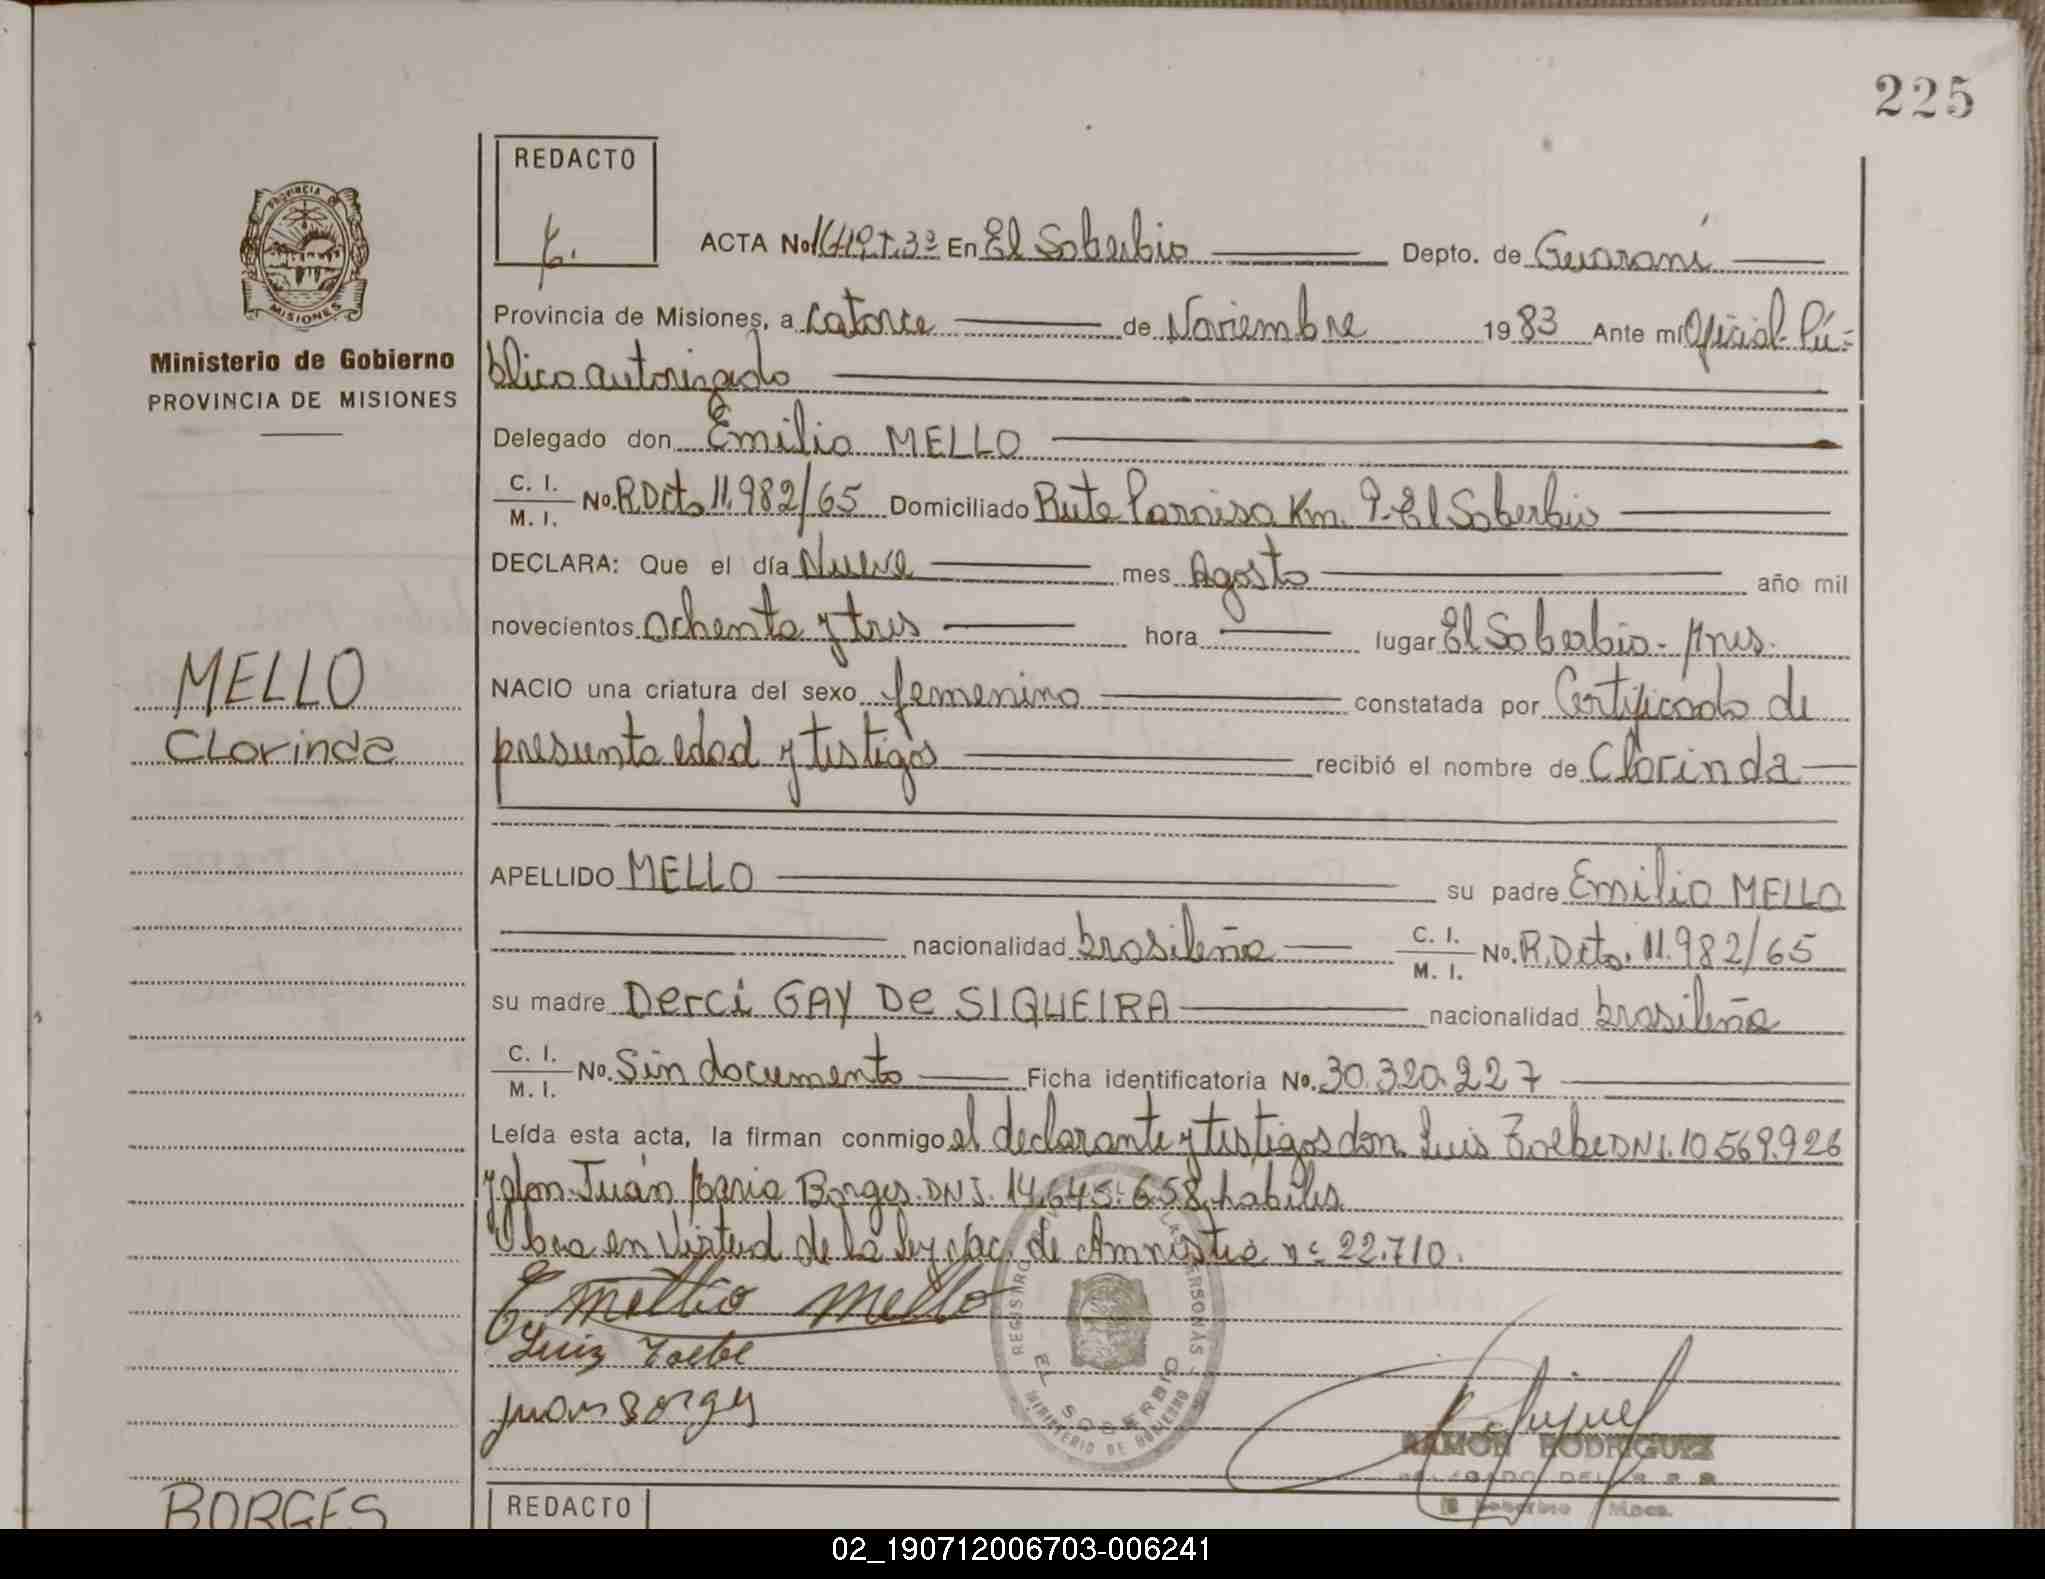 225
REDACTO
PROVINCIA DE
MISIONES
Ministerio de Gobierno
PROVINCIA DE MISIONES
ACTA No 1619 T.3º En El Soberbio Depto. de Guaraní
Provincia de Misiones, a catorce de Noviembre 1983 Ante mí Oficial Pú-
blico autorizado
Delegado don Emilio MELLO
C. I. / M. I. No. R.Dcto 11.982/65 Domiciliado Ruta Paraiso Km. 9-El Soberbio
DECLARA: Que el día Nueve mes Agosto año mil
novecientos ochenta y tres hora lugar El Soberbio - Mnes.
MELLO
Clorinda
NACIO una criatura del sexo femenino constatada por Certificado de
presunta edad y testigos recibió el nombre de Clorinda
APELLIDO MELLO su padre Emilio MELLO
nacionalidad brasileña C. I. / M. I. No. R.Dcto. 11.982/65
su madre Derci GAY De SIQUEIRA nacionalidad brasileña
C. I. / M. I. No. Sin documento Ficha identificatoria No. 30.320.227
Leída esta acta, la firman conmigo el declarante y testigos don Luis DNI. 10.569.926
y don Juan Maria Borges DNI. 14.645.658 habiles.
Obra en Virtud de la ley Nac. de Amnistia nº 22.710.
Emellio Mello
Luiz
Juan Borges
REGISTRO LAS PERSONAS
EL SOBERBIO
MINISTERIO DE GOBIERNO
RAMON RODRIGUEZ
DELEGADO DEL
El Soberbio Mnes.
BORGES
REDACTO
02_190712006703-006241